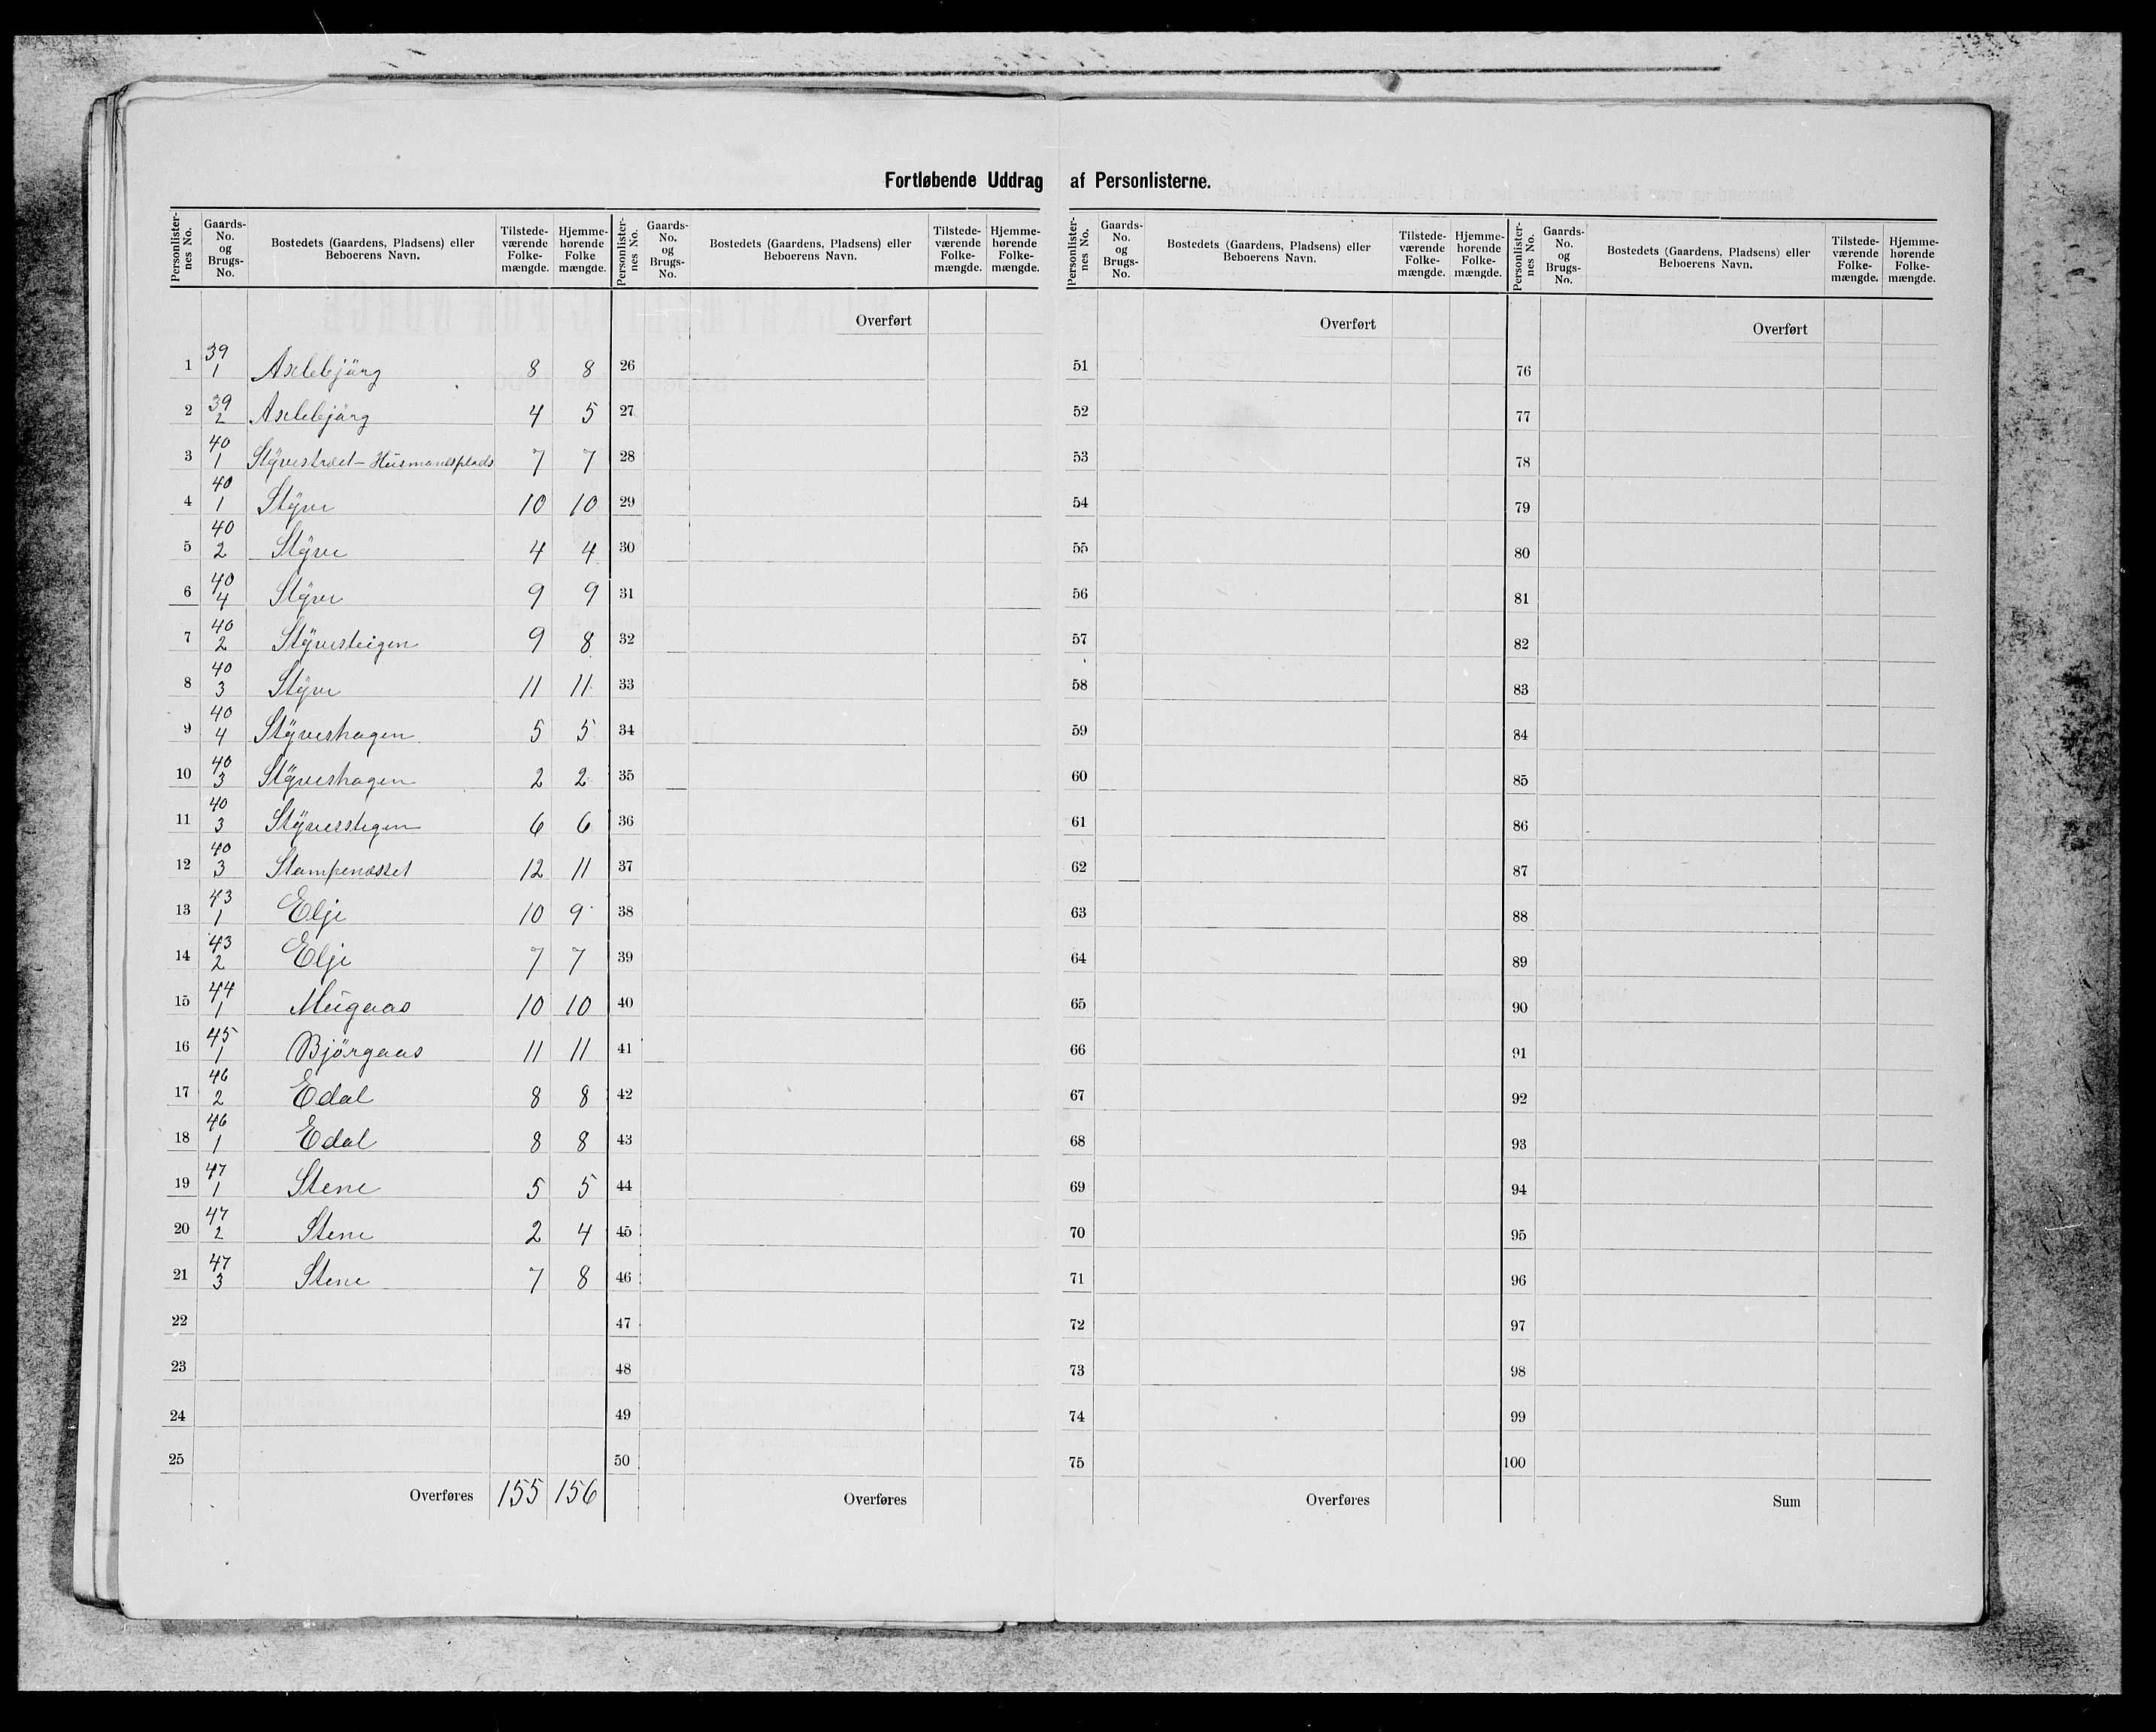 Fortløbende Uddrag af Personlisterne.
Personlisternes No. | Gaards-No. og Brugs-No. | Bostedets (Gaardens, Pladsens) eller Beboerens Navn. | Tilstedeværende Folkemængde. | Hjemmehørende Folke mængde.
1 39/1 Axlebjärg 8 8
2 39/2 Axlebjärg 4 5
3 40/1 Stÿvestræet - Husmandsplads 7 7
4 40/1 Stÿve 10 10
5 40/2 Stÿve 4 4
6 40/4 Stÿve 9 9
7 40/2 Stÿvesteigen 9 8
8 40/3 Stÿve 11 11
9 40/4 Stÿveshagen 5 5
10 40/3 Stÿveshagen 2 2
11 40/3 Stÿvesstegen 6 6
12 40/3 Stampenæsset 12 11
13 43/1 Elje 10 9
14 43/2 Elje 7 7
15 44/1 Mugaas 10 10
16 45/1 Björgaas 11 11
17 46/2 Edal 8 8
18 46/1 Edal 8 8
19 47/1 Stene 5 5
20 47/2 Stene 2 4
21 47/3 Stene 7 8
22
23
24
25
Overføres 155 156
Personlisternes No. | Gaards-No. og Brugs-No. | Bostedets (Gaardens, Pladsens) eller Beboerens Navn. | Tilstedeværende Folkemængde. | Hjemmehørende Folkemængde.
Overført
26
27
28
29
30
31
32
33
34
35
36
37
38
39
40
41
42
43
44
45
46
47
48
49
50
Overføres
Personlisternes No. | Gaards-No. og Brugs-No. | Bostedets (Gaardens, Pladsens) eller Beboerens Navn. | Tilstedeværende Folkemængde. | Hjemmehørende Folkemængde.
Overført
51
52
53
54
55
56
57
58
59
60
61
62
63
64
65
66
67
68
69
70
71
72
73
74
75
Overføres
Personlisternes No. | Gaards-No. og Brugs-No. | Bostedets (Gaardens, Pladsens) eller Beboerens Navn. | Tilstedeværende Folkemængde. | Hjemmehørende Folkemængde.
Overført
76
77
78
79
80
81
82
83
84
85
86
87
88
89
90
91
92
93
94
95
96
97
98
99
100
Sum